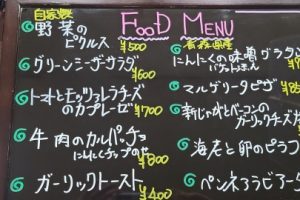 FOOD MENU
自家製
野菜の
ピクルス
¥500
グリーンシーザーサラダ
¥600
トマトとモッツァレラチーズ
のカプレーゼ ¥700
牛肉のカルパッチョ
にんにくチップのせ
¥800
ガーリックトースト
¥400
にんにくの味噌グラタン
バケットまん
マルゲリータピザ
¥85
新じゃがとベーコンの
ガーリックチーズ
海老と卵のピラフ
ペンネアラビアータ